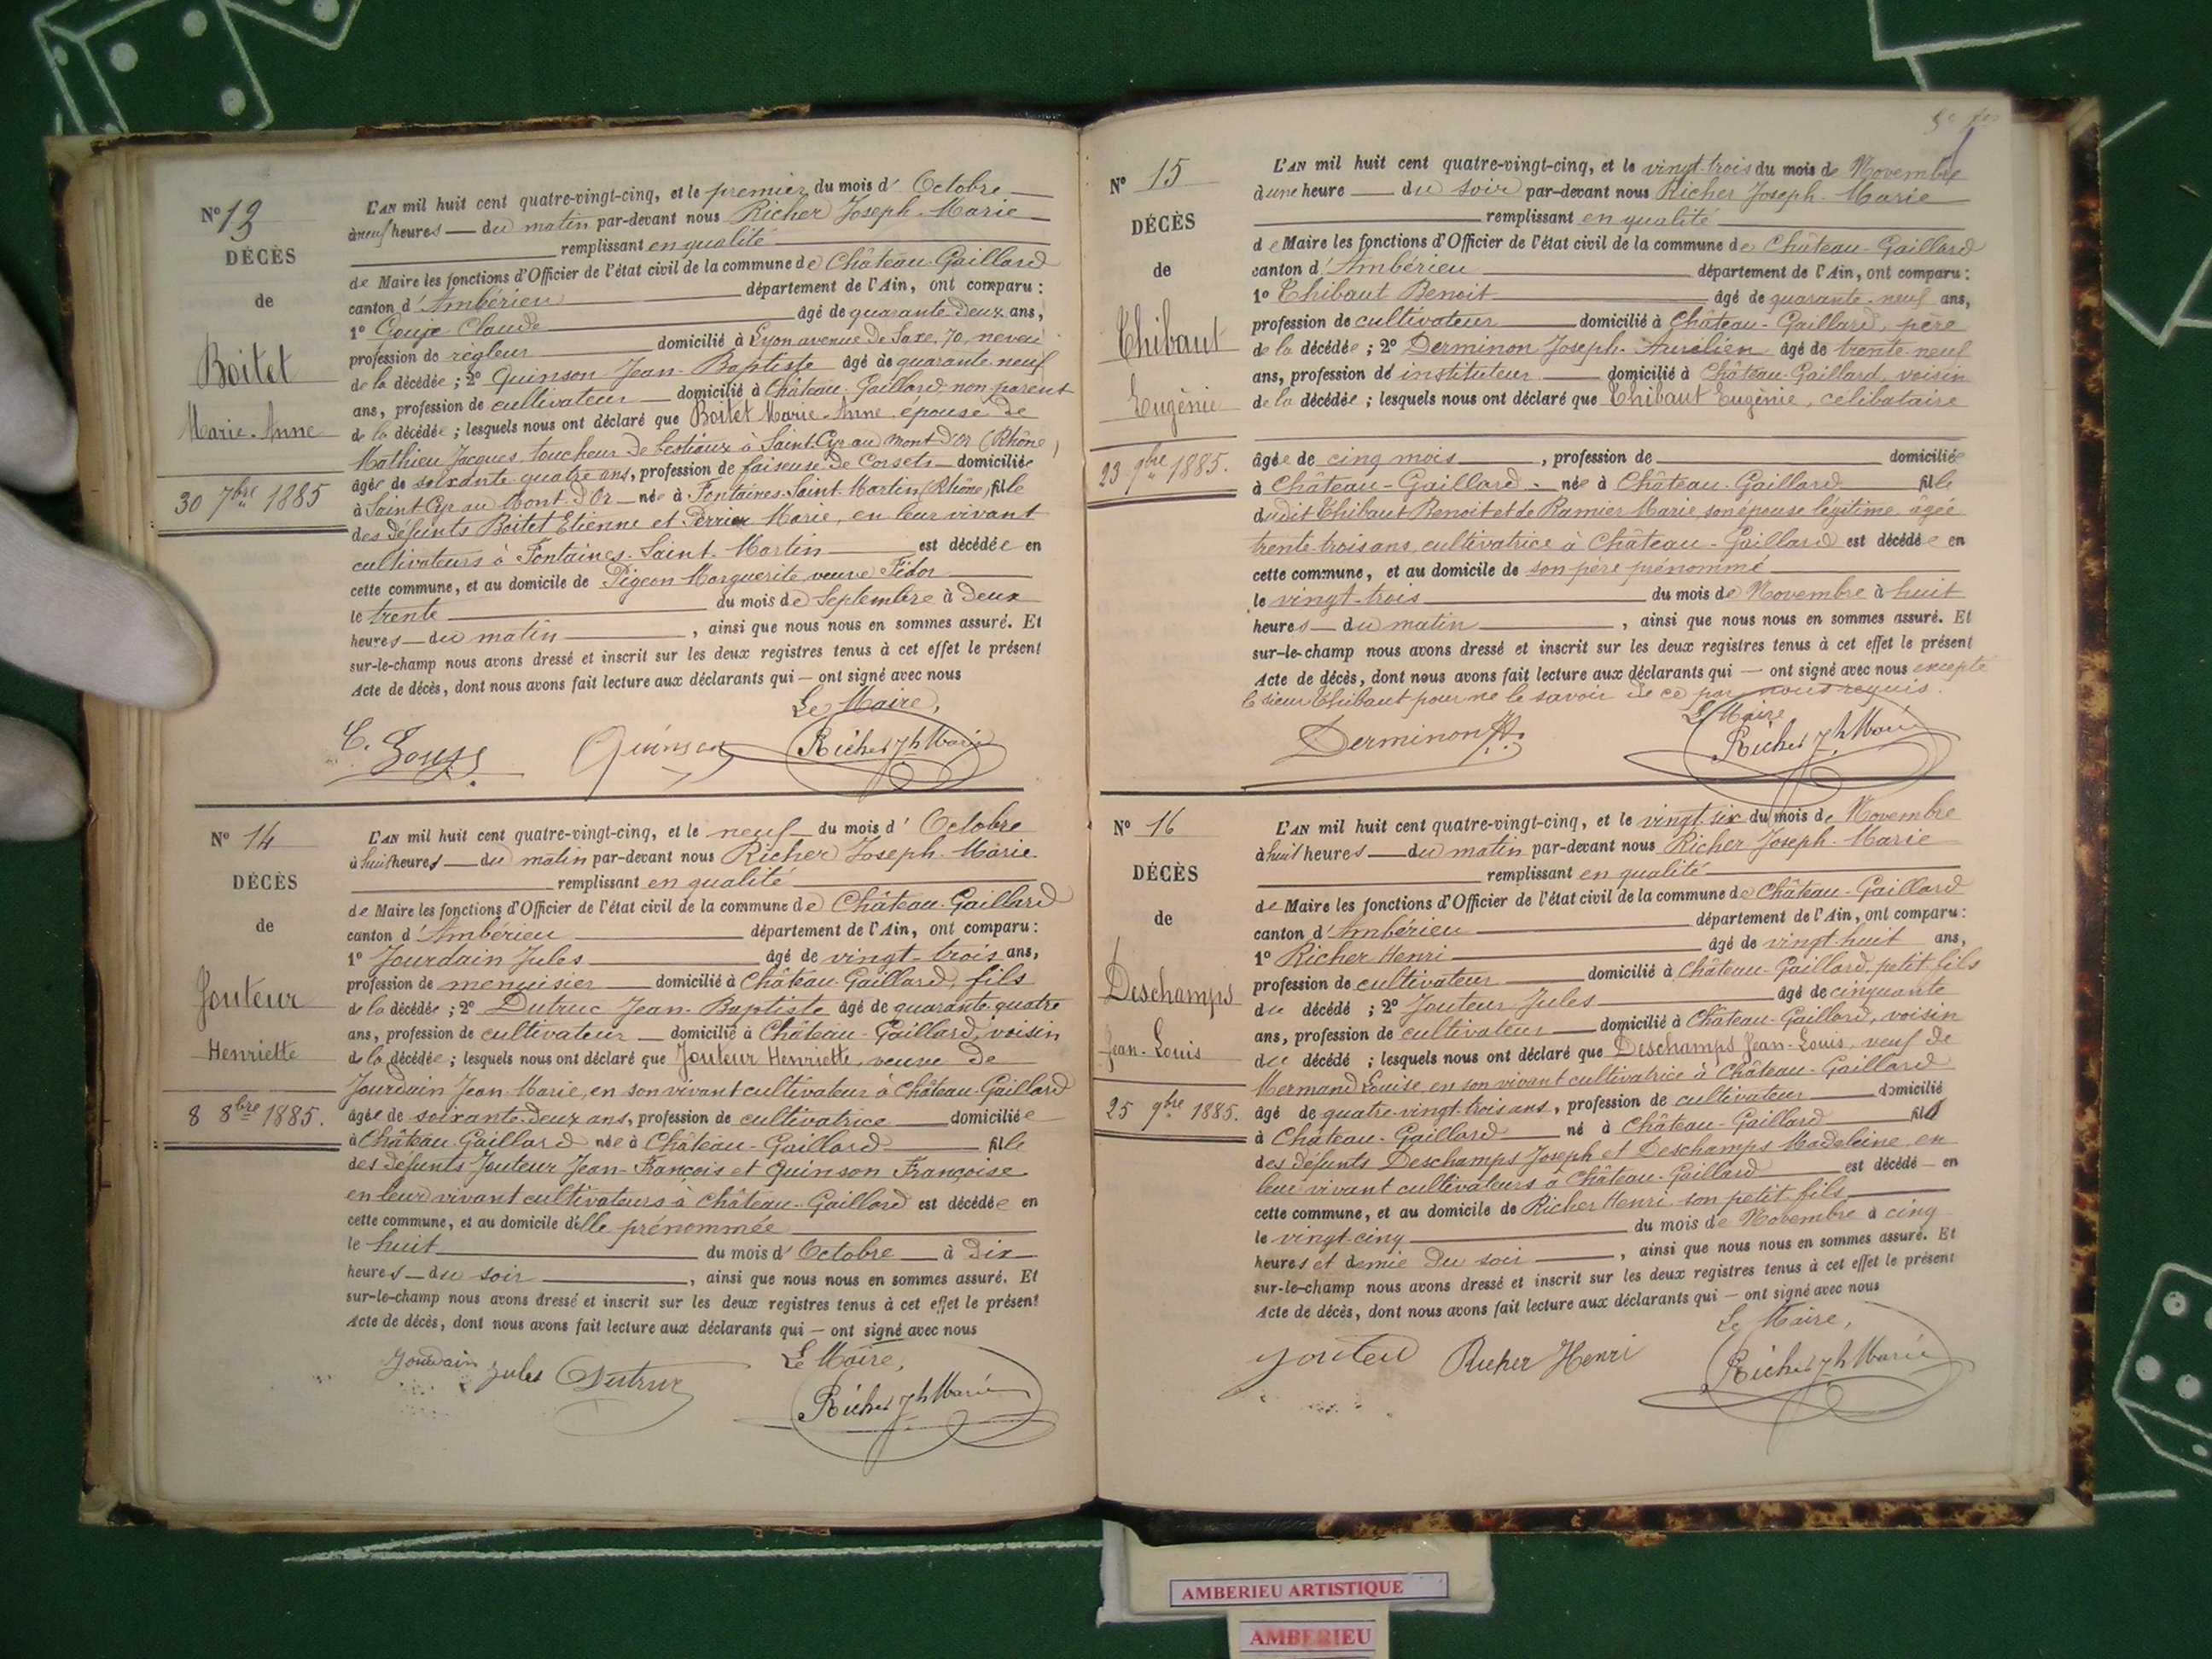 Nº 13
DÉCÈS
de
Boitet
Marie-Anne
30 7bre 1885
L'AN mil huit cent quatre-vingt-cinq, et le premier du mois d' Octobre
à neuf heures du matin par-devant nous Richer Joseph-Marie
remplissant en qualité
de Maire les fonctions d'Officier de l'état civil de la commune de Château-Gaillard
canton d'Ambérieu département de l'Ain, ont comparu :
1º Claude âgé de quarante-deux ans,
profession de régleur domicilié à Lyon avenue de Saxe, 70, neveu
de la décédée ; 2º Quinson Jean-Baptiste âgé de quarante-neuf
ans, profession de cultivateur domicilié à Château-Gaillard, non-parent
de la décédée ; lesquels nous ont déclaré que Boitet Marie-Anne, épouse de
Mathieu Jacques, toucheur de bestiaux à Saint-Cyr au Mont d'Or (Rhône)
âgée de soixante quatre ans, profession de faiseuse de Corsets domiciliée
à Saint-Cyr au Mont d'Or née à Fontaines-Saint-Martin (Rhône) fille
des défunts Boitet Etienne et Perrier Marie, en leur vivant
cultivateurs à Fontaines-Saint-Martin est décédée en
cette commune, et au domicile de Pigeon Marguerite veuve Fidor
le trente du mois de Septembre à deux
heures du matin , ainsi que nous nous en sommes assuré. Et
sur-le-champ nous avons dressé et inscrit sur les deux registres tenus à cet effet le présent
Acte de décès, dont nous avons fait lecture aux déclarants qui — ont signé avec nous
Le Maire,
C. Quinson Richer Jh Marie
Nº 14
DÉCÈS
de
Jouteur
Henriette
8 8bre 1885.
L'AN mil huit cent quatre-vingt-cinq, et le neuf du mois d' Octobre
à huit heures du matin par-devant nous Richer Joseph-Marie
remplissant en qualité
de Maire les fonctions d'Officier de l'état civil de la commune de Château-Gaillard
canton d'Ambérieu département de l'Ain, ont comparu :
1º Jourdain Jules âgé de vingt-trois ans,
profession de menuisier domicilié à Château-Gaillard, fils
de la décédée ; 2º Dutruc Jean-Baptiste âgé de quarante-quatre
ans, profession de cultivateur domicilié à Château-Gaillard, voisin
de la décédée ; lesquels nous ont déclaré que Jouteur Henriette, veuve de
Jourdain Jean-Marie, en son vivant cultivateur à Château-Gaillard
âgée de soixante-deux ans, profession de cultivatrice domiciliée
à Château-Gaillard née à Château-Gaillard fille
des défunts Jouteur Jean-François et Quinson Françoise
en leur vivant cultivateurs à Château-Gaillard est décédée en
cette commune, et au domicile d'elle prénommée
le huit du mois d' Octobre à dix
heures du soir , ainsi que nous nous en sommes assuré. Et
sur-le-champ nous avons dressé et inscrit sur les deux registres tenus à cet effet le présent
Acte de décès, dont nous avons fait lecture aux déclarants qui — ont signé avec nous
Le Maire,
Jourdain Jules Dutruc Richer Jh Marie
Nº 15
DÉCÈS
de
Thibaut
Eugénie
23 9bre 1885.
L'AN mil huit cent quatre-vingt-cinq, et le vingt-trois du mois de Novembre
à une heure du soir par-devant nous Richer Joseph-Marie
remplissant en qualité
de Maire les fonctions d'Officier de l'état civil de la commune de Château-Gaillard
canton d'Ambérieu département de l'Ain, ont comparu :
1º Thibaut Benoit âgé de quarante-neuf ans,
profession de cultivateur domicilié à Château-Gaillard, père
de la décédée ; 2º Derminon Joseph-Aurélien âgé de trente-neuf
ans, profession de instituteur domicilié à Château-Gaillard, voisin
de la décédée ; lesquels nous ont déclaré que Thibaut Eugénie, célibataire
âgée de cinq mois , profession de domiciliée
à Château-Gaillard née à Château-Gaillard fille
dudit Thibaut Benoit et de Ramier Marie, son épouse légitime, âgée
trente-trois ans, cultivatrice à Château-Gaillard est décédée en
cette commune, et au domicile de son père prénommé
le vingt-trois du mois de Novembre à huit
heures du matin , ainsi que nous nous en sommes assuré. Et
sur-le-champ nous avons dressé et inscrit sur les deux registres tenus à cet effet le présent
Acte de décès, dont nous avons fait lecture aux déclarants qui — ont signé avec nous excepté
le sieur Thibaut pour ne le savoir de ce par nous requis.
Le Maire
Derminon JA. Richer Jh Marie
Nº 16
DÉCÈS
de
Deschamps
Jean-Louis
25 9bre 1885.
L'AN mil huit cent quatre-vingt-cinq, et le vingt-six du mois de Novembre
à huit heures du matin par-devant nous Richer Joseph-Marie
remplissant en qualité
de Maire les fonctions d'Officier de l'état civil de la commune de Château-Gaillard
canton d'Ambérieu département de l'Ain, ont comparu :
1º Richer Henri âgé de vingt-huit ans,
profession de cultivateur domicilié à Château-Gaillard, petit-fils
du décédé ; 2º Jouteur Jules âgé de cinquante
ans, profession de cultivateur domicilié à Château-Gaillard, voisin
du décédé ; lesquels nous ont déclaré que Deschamps Jean-Louis, veuf de
Mermand Louise en son vivant cultivatrice à Château-Gaillard
âgé de quatre-vingt-trois ans, profession de cultivateur domicilié
à Château-Gaillard né à Château-Gaillard fils
des défunts Deschamps Joseph et Deschamps Madeleine, en
leur vivant cultivateurs à Château-Gaillard est décédé en
cette commune, et au domicile de Richer Henri son petit-fils
le vingt-cinq du mois de Novembre à cinq
heures et demie du soir , ainsi que nous nous en sommes assuré. Et
sur-le-champ nous avons dressé et inscrit sur les deux registres tenus à cet effet le présent
Acte de décès, dont nous avons fait lecture aux déclarants qui — ont signé avec nous
Le Maire,
Jouteu Richer Henri Richer Jh Marie
AMBERIEU ARTISTIQUE
AMBERIEU